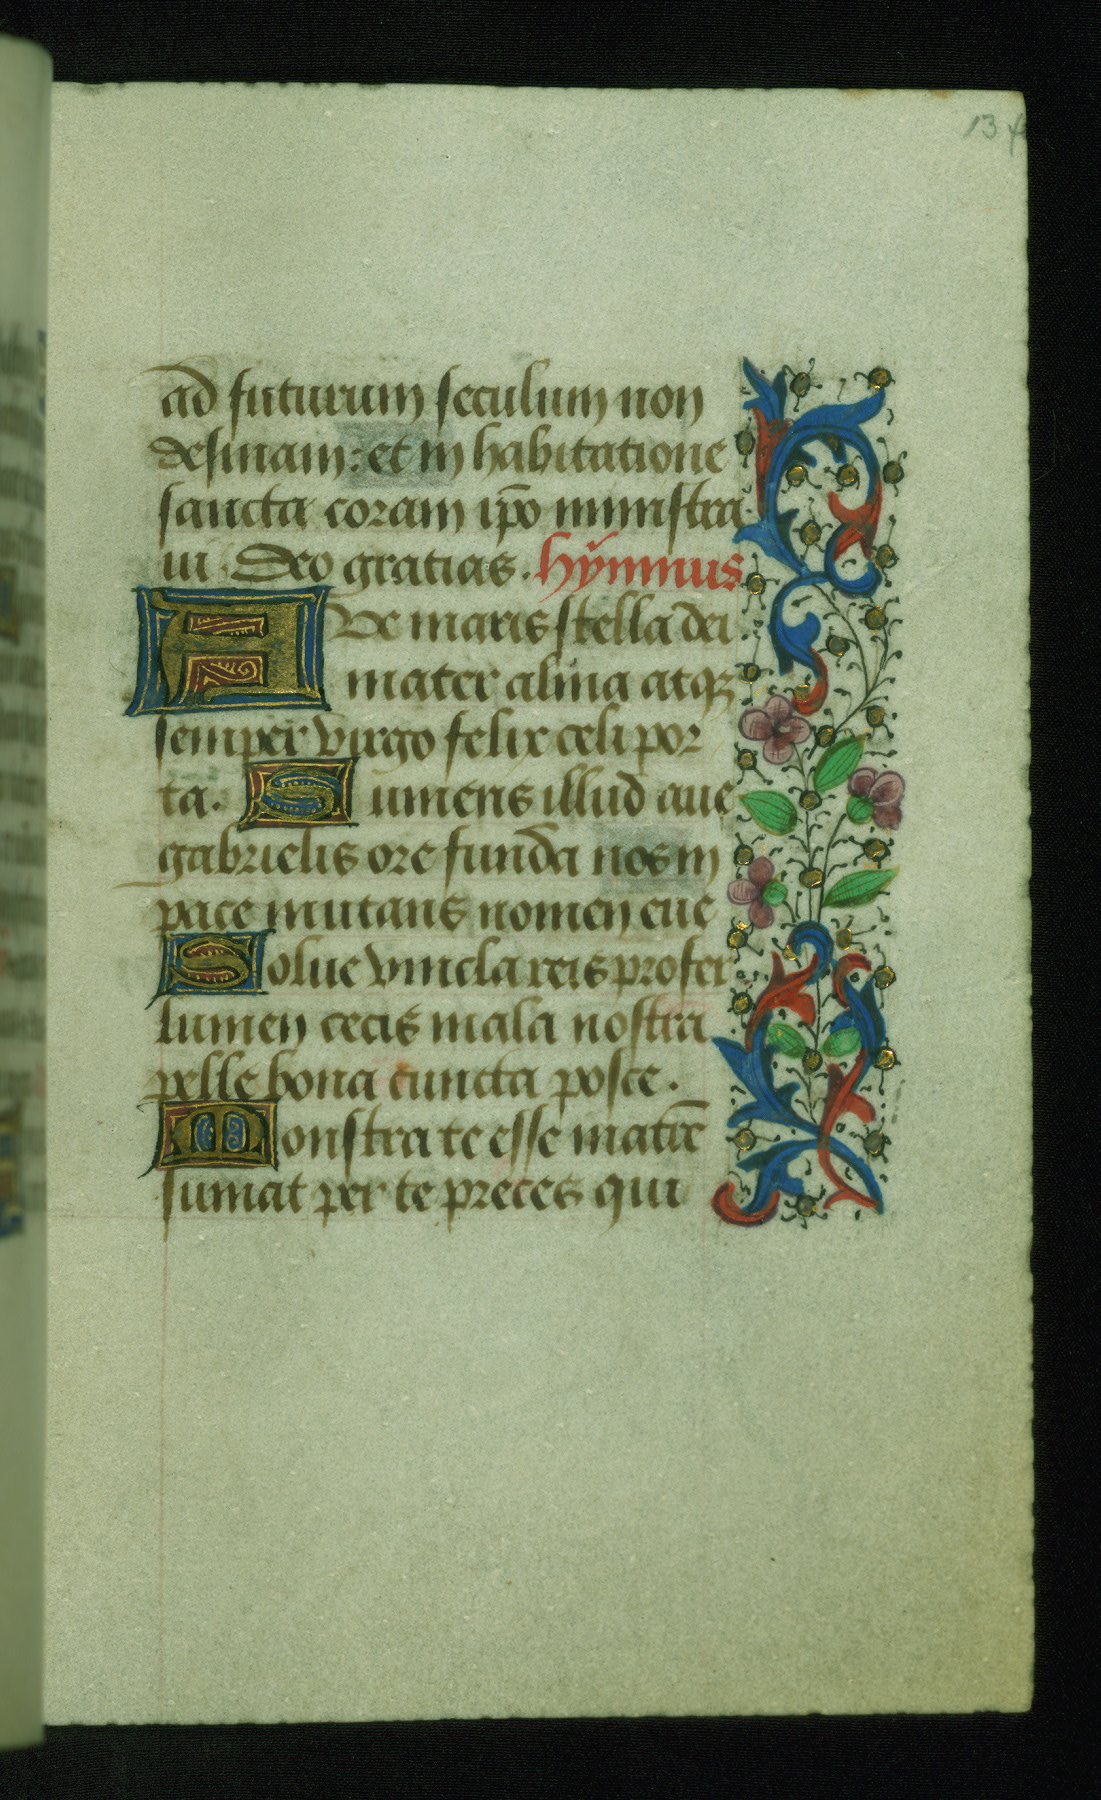 13 f
ad futurum seculum non
desinam: et in habitatione
sancta coram ip̄o ministra
ui. Deo gratias. hymnus
Aue maris stella dei
mater alma atqꝫ
semper virgo felix celi por
ta. Sumens illud aue
gabrielis ore funda nos in
pace mutans nomen eue
Solue vincla reis profer
lumen cecis mala nostra
pelle bona cuncta posce.
Monstra te esse matrē
sumat per te preces qui